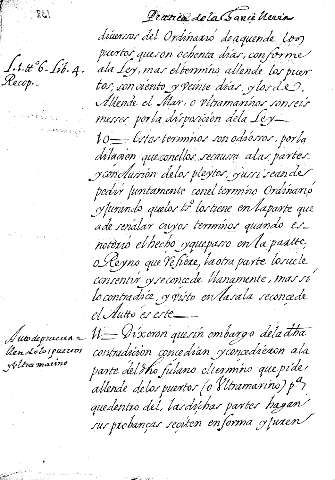 Practica de la Chancilleria
diversos del Ordinario de aquende los
puertos, que son ochenta dias, conforme
a la Ley, mas el termino allende los puer
tos, son ciento, y veinte dias, y los de
Allende el Mar, o Vltramarinos son seis
meses por la disposicion de la Ley
L. 1. tto. 6. Lib. 4.
Recop.
10= Estos terminos son odiosos, por la
dilacion que con ellos, se causa a las partes
y conclusion de los pleytos, y assi se an de
pedir juntamente con el termino Ordinario
y jurando que los tos. los tiene en la parte que
a de señalar cuyos terminos quando es
notorio el hecho, y que passo en la parte,
o Reyno que refiere, la otra parte lo suele
consentir y se concede llanamente, mas si
lo contradice, y visto en la sala se concede
el Autto es este
Auto de prueva a
llende los puertos
y Vltramarino
11= Dixeron que sin embargo de la dha
contradicion concedian, y concedieron a la
parte del dho fulano el termino que pide
allende de los puertos (o Vltramarino) pa
que dentro del, las dichas partes hagan
sus probanças según en forma y juren